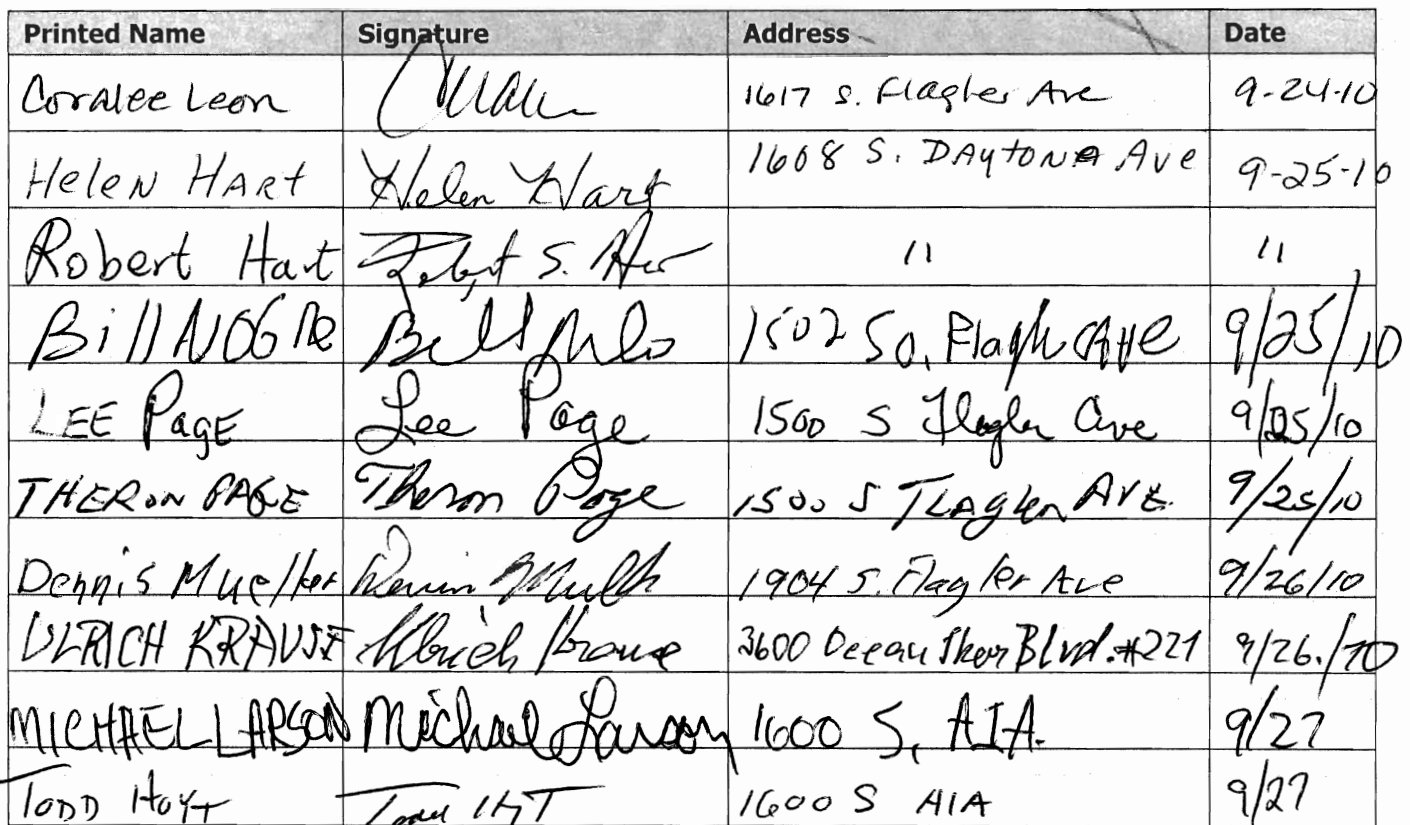 Printed Name Signature Address Date
Coralee Leon 1617 S. Flagler Ave 9-24-10
Helen HART Helen Hart 1608 S. DAytONA Ave 9-25-10
Robert Hart Robert S. 11 11
Bill Bill 1502 So. Ave 9/25/10
LEE PagE Lee Page 1500 S Flagler Ave 9/25/10
THERON PAGE Theron Page 1500 S FLAglen AVE. 9/25/10
Dennis Mueller 1904 S. Flagler Ave 9/26/10
ULRICH KRAUSE Ulrich Krause 3600 Ocean Shor Blvd. #221 9/26./10
MICHAEL LARSON Michael Larson 1600 S. A1A. 9/27
TODD HOYT Todd 1600 S A1A 9/27